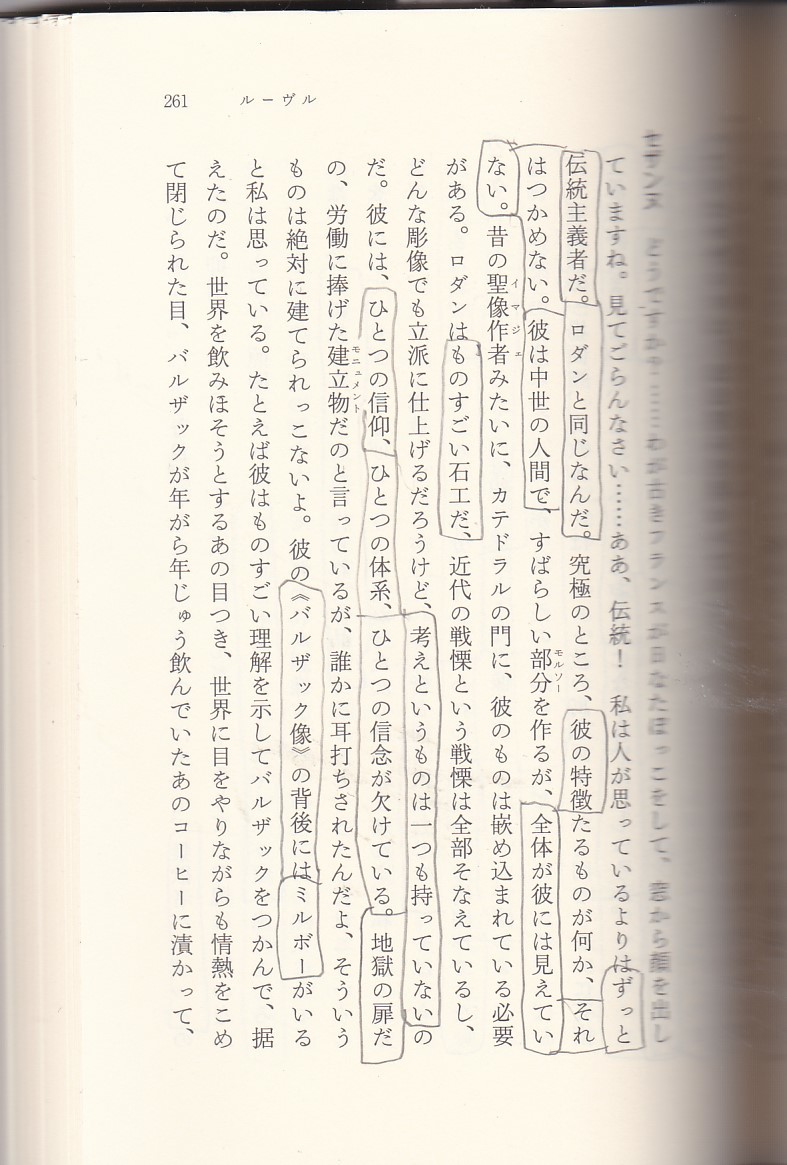 261 ルーヴル
セザンヌ どうですか？……わが古きフランスが日なたぼっこをして、窓から顔を出し
ていますね。見てごらんなさい……ああ、伝統！ 私は人が思っているよりはずっと
伝統主義者だ。ロダンと同じなんだ。究極のところ、彼の特徴たるものが何か、それ
はつかめない。彼は中世の人間で、すばらしい部分を作るが、全体が彼には見えてい
モルソー
ない。昔の聖像作者みたいに、カテドラルの門に、彼のものは嵌め込まれている必要
イマジェ
がある。ロダンはものすごい石工だ、近代の戦慄という戦慄は全部そなえているし、
どんな彫像でも立派に仕上げるだろうけど、考えというものは一つも持っていないの
だ。彼には、ひとつの信仰、ひとつの体系、ひとつの信念が欠けている。地獄の扉だ
の、労働に捧げた建立物だのと言っているが、誰かに耳打ちされたんだよ、そういう
モニュメント
ものは絶対に建てられっこないよ。彼の《バルザック像》の背後にはミルボーがいる
と私は思っている。たとえば彼はものすごい理解を示してバルザックをつかんで、据
えたのだ。世界を飲みほそうとするあの目つき、世界に目をやりながらも情熱をこめ
て閉じられた目、バルザックが年がら年じゅう飲んでいたあのコーヒーに漬かって、